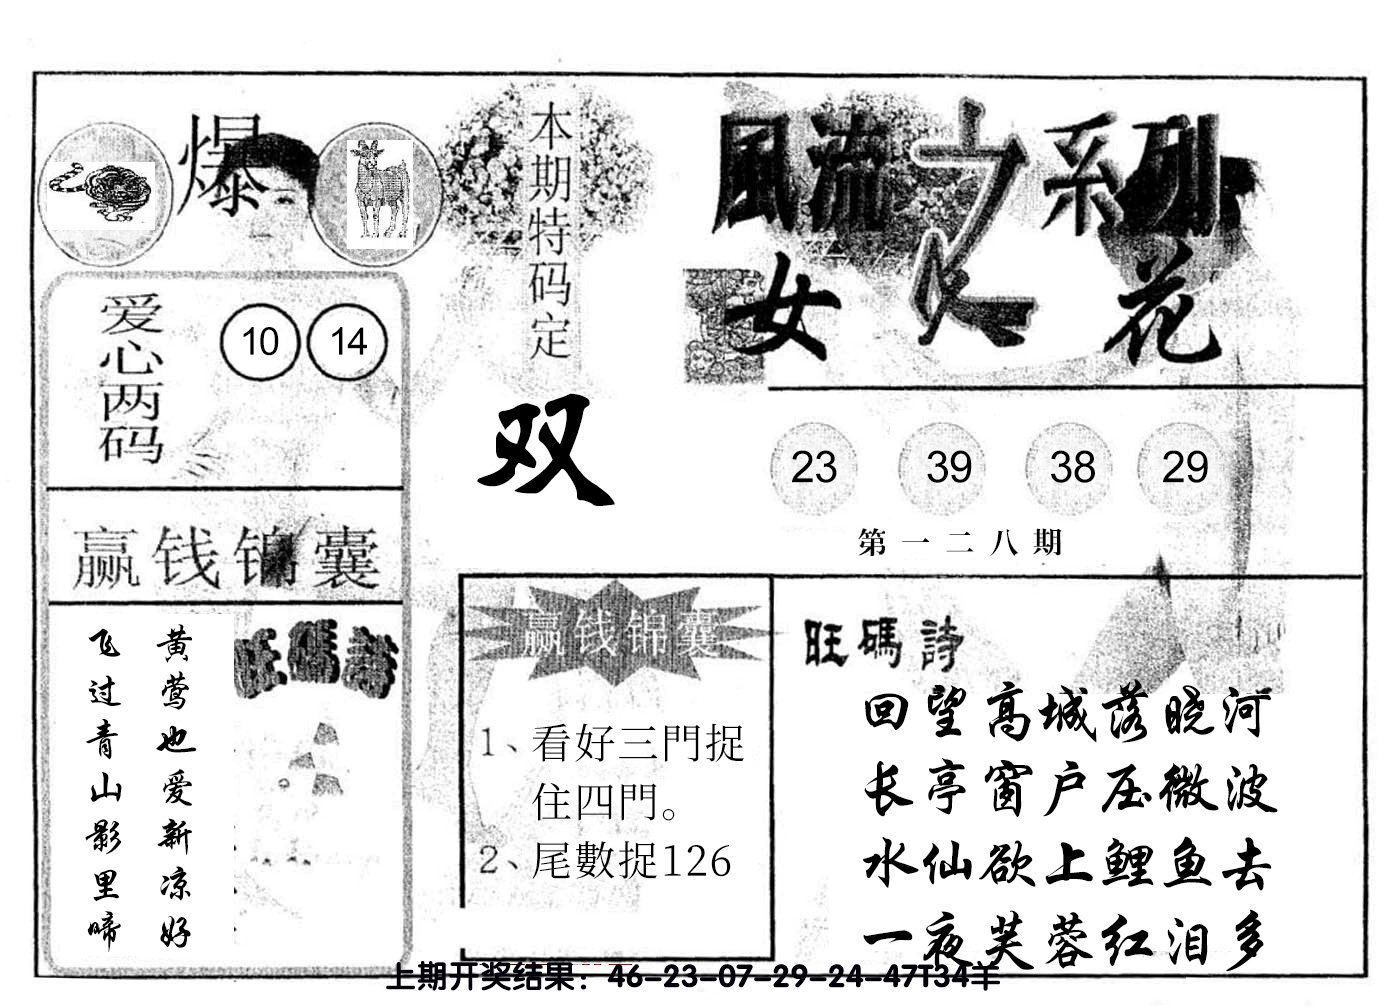 爆
本期特码定
双
風流之系列
女人花
爱心两码
10 14
23 39 38 29
第一二八期
赢钱锦囊
黄莺也爱新凉好
飞过青山影里啼
旺碼詩
赢钱锦囊
1、看好三門捉
住四門。
2、尾數捉126
旺碼詩
回望高城落晓河
长亭窗户压微波
水仙欲上鲤鱼去
一夜芙蓉红泪多
上期开奖结果：46-23-07-29-24-47T34羊